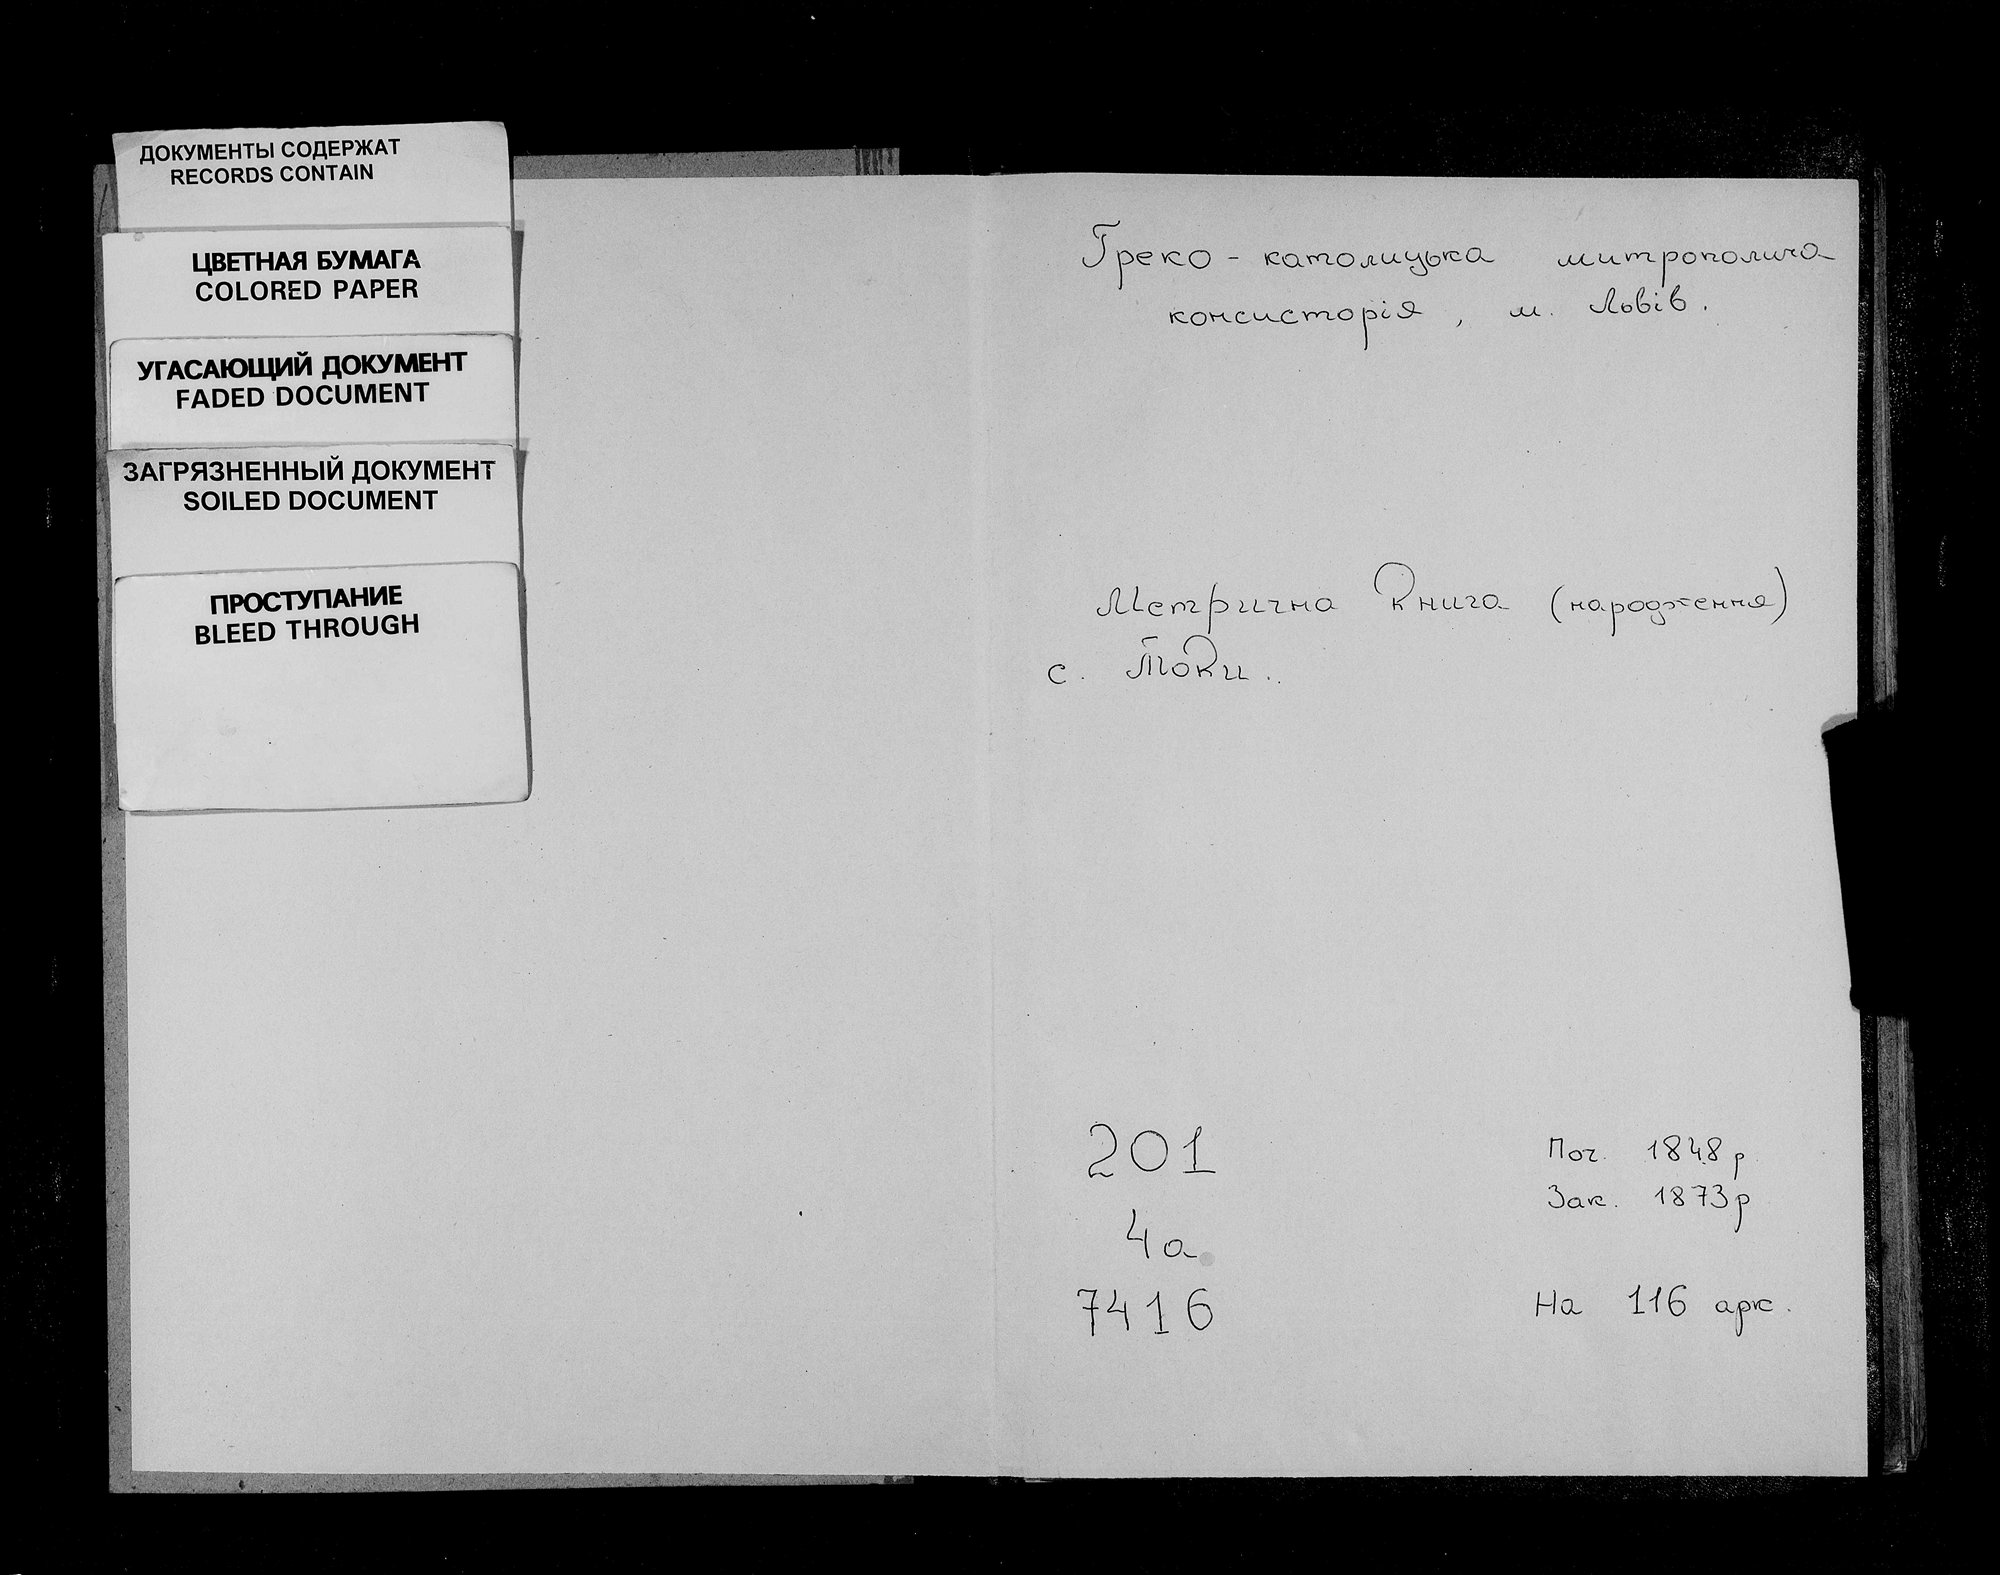 ДОКУМЕНТЫ СОДЕРЖАТ
RECORDS CONTAIN
ЦВЕТНАЯ БУМАГА
COLORED PAPER
УГАСАЮЩИЙ ДОКУМЕНТ
FADED DOCUMENT
ЗАГРЯЗНЕННЫЙ ДОКУМЕНТ
SOILED DOCUMENT
ПРОСТУПАНИЕ
BLEED THROUGH
Греко - католицька митрополича
консисторія, м. Львів.
Метрична Книга (народження)
с. Токи..
201
4а
7416
Поч. 1848 р
Зак. 1873 р
На 116 арк.